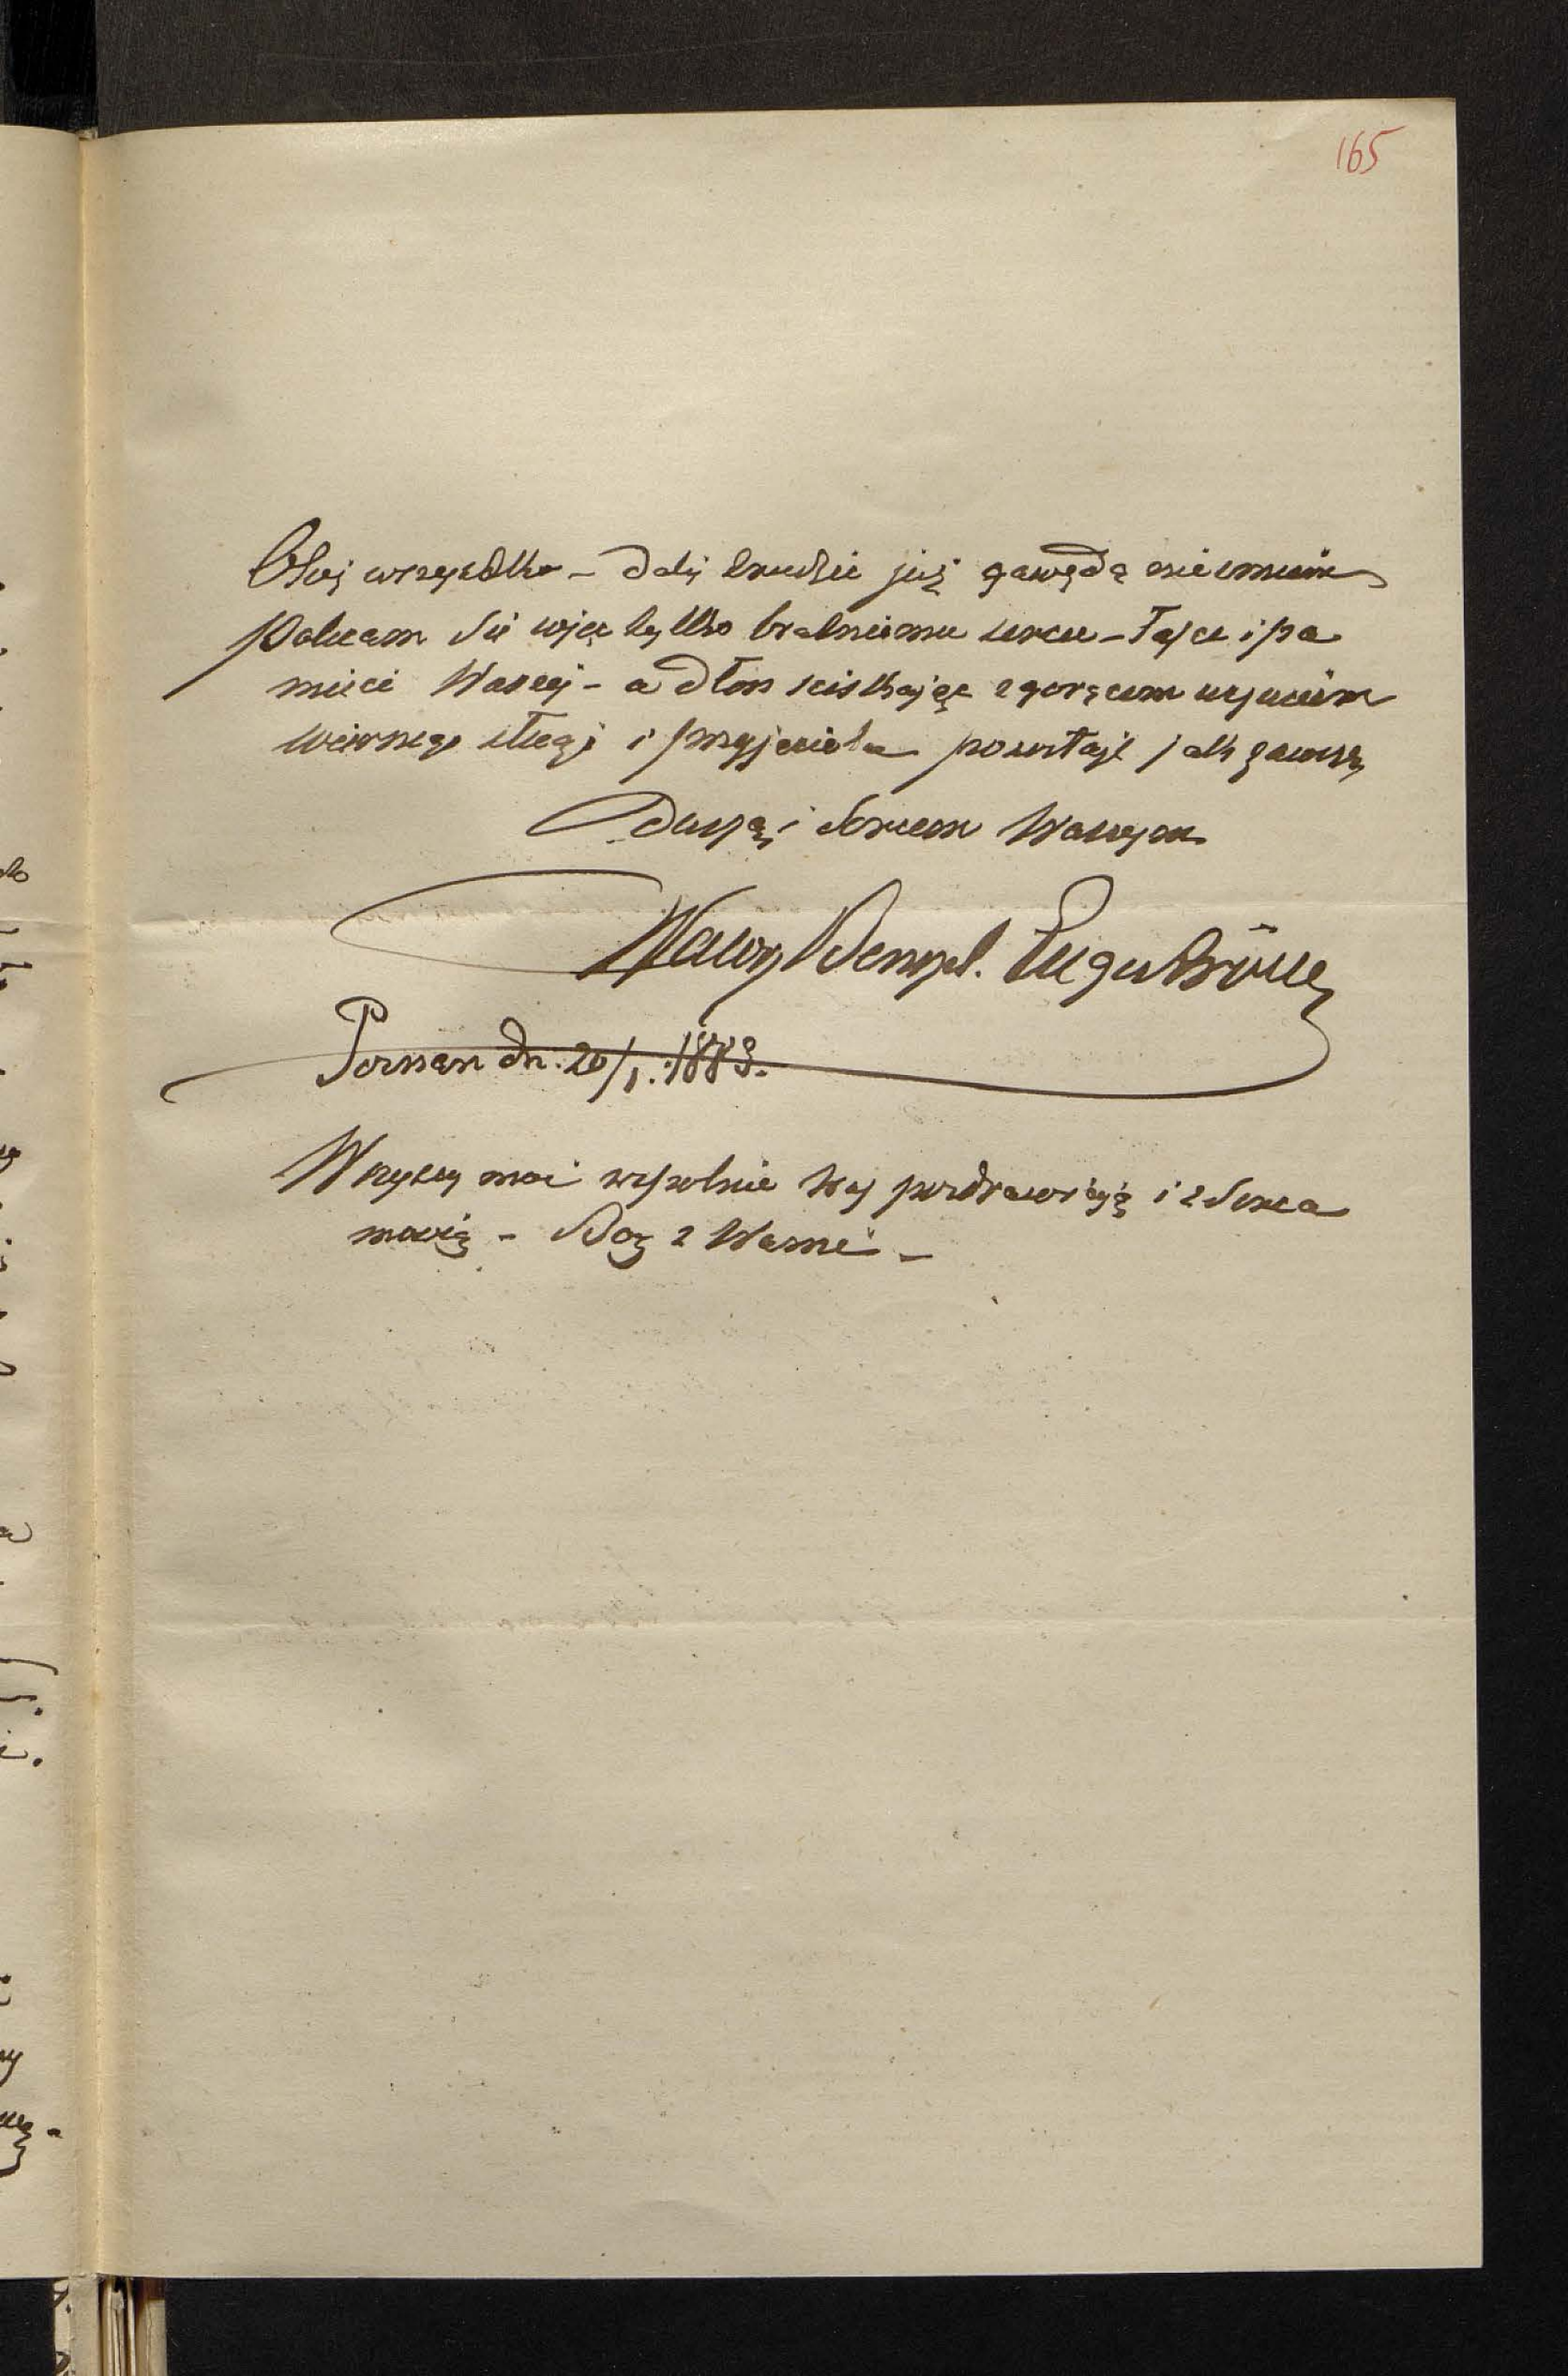 165
Otoż wszystko – dali trudzić już gawędą nie umiem
Polecam się więc tylko bratniemu sercu – łasce i pa
mięci Waszej – a dłoń sciskając z gorącem uczuciem
wiernego sługi i przyjaciela pozostaję jak zawsze
Duszą i Sercem Waszym
Wawrz Benzel. Engeström
Poznan dn. 20/1. 1883.
Wszyscy moi wspolnie Was pozdrawiają i z Serca
mowią – Bog z Wami –